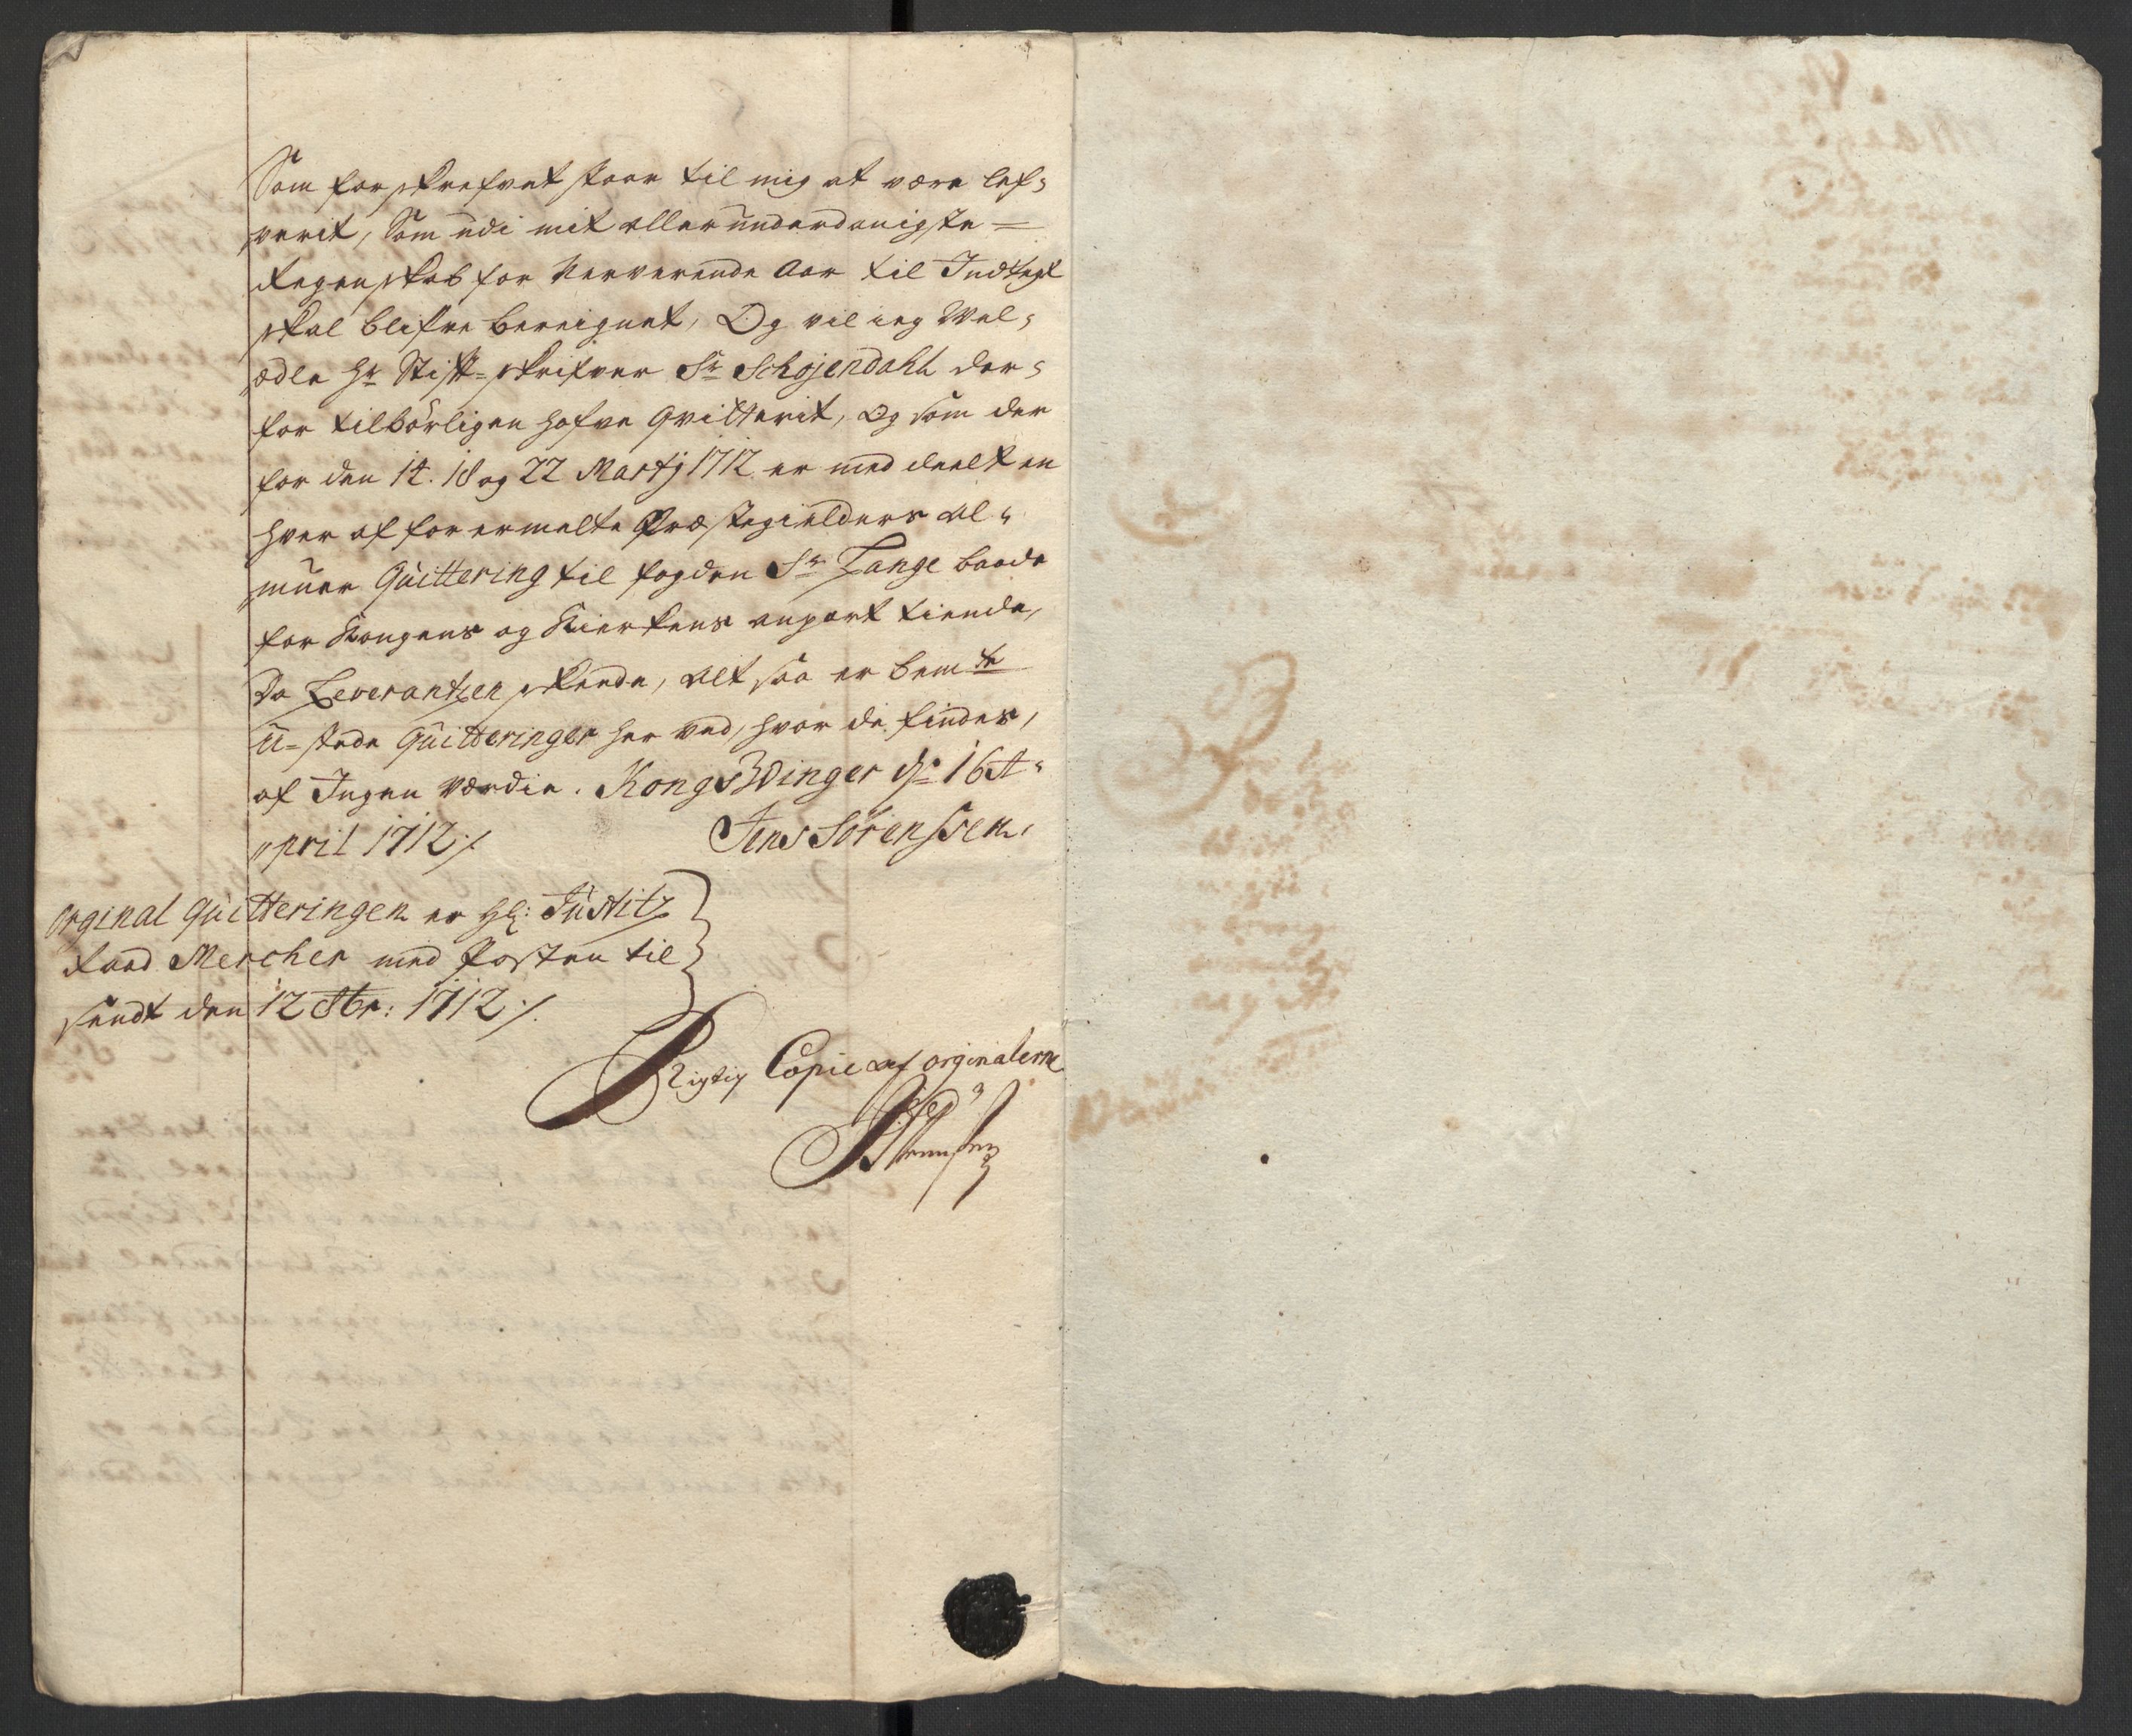 Som forskrefvet staar til mig at være lef-
verit, Som udi mit allerunderdanigste =
Regenskab for Nerverende Aar til Indtegt
skal blifve bereignet, Og vil ieg Wel-
ædle Hr Stift-skrifver Sr Schojendahl der-
for tilbörligen hafve Qvitterit, Og som der
for den 14. 18 og 22 Martij 1712 er med deelt en
hver af forermelte Præstegielders Al-
muer Quittering til fogden Sr Lange baade
for Kongens og Kierkens anpart tiende,
Da Leverantzen skeede, Alt saa er bemte
U-stede Quitteringer her ved, hvor de findes,
af Ingen Værdie. Kongs Winger dn 16 A-
pril 1712 ⁒ Jens Sörenssen,
Orginal Quitteringen er Hr: Justitz
Raad Mercher med Posten til
sendt den 12 8br: 1712 ⁒
Rigtig Copie af orginalerne